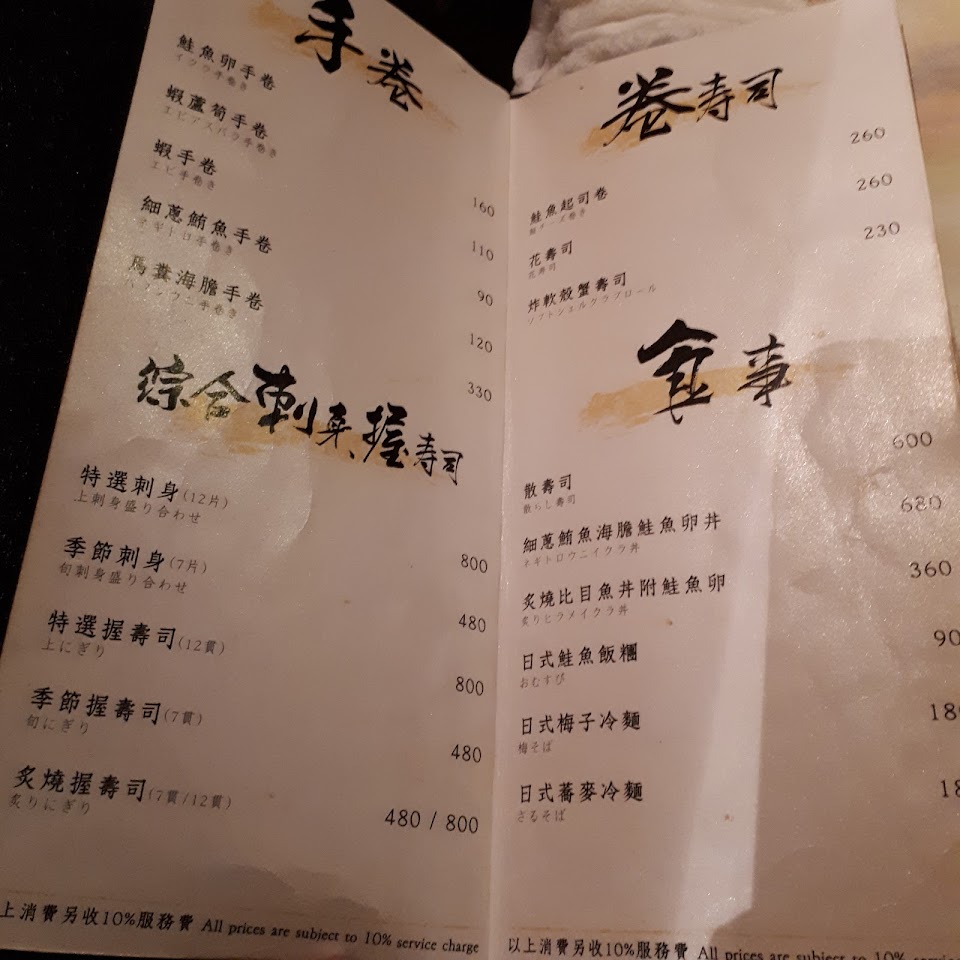 手卷
鮭魚卵手卷 160
イクラ手巻き
蝦蘆筍手卷 110
エビアスパラ手巻き
蝦手卷 90
エビ手巻き
細蔥鮪魚手卷 120
ネギトロ手巻き
馬糞海膽手卷 330
綜合刺身、握壽司
特選刺身(12片) 800
上刺身盛り合わせ
季節刺身(7片) 480
旬刺身盛り合わせ
特選握壽司(12貫) 800
上にぎり
季節握壽司(7貫) 480
旬にぎり
炙燒握壽司(7貫/12貫) 480 / 800
炙りにぎり
上消費另收10%服務費 All prices are subject to 10% service charge
卷壽司
鮭魚起司卷 260
花壽司 260
花寿司
炸軟殼蟹壽司 230
ソフトシェルクラブロール
食事
散壽司 600
散らし寿司
細蔥鮪魚海膽鮭魚卵丼 680
ネギトロウニイクラ丼
炙燒比目魚丼附鮭魚卵 360
炙りヒラメイクラ丼
日式鮭魚飯糰 90
おむすび
日式梅子冷麵 18
梅そば
日式蕎麥冷麵 18
ざるそば
以上消費另收10%服務費 All prices are subject to 10% service